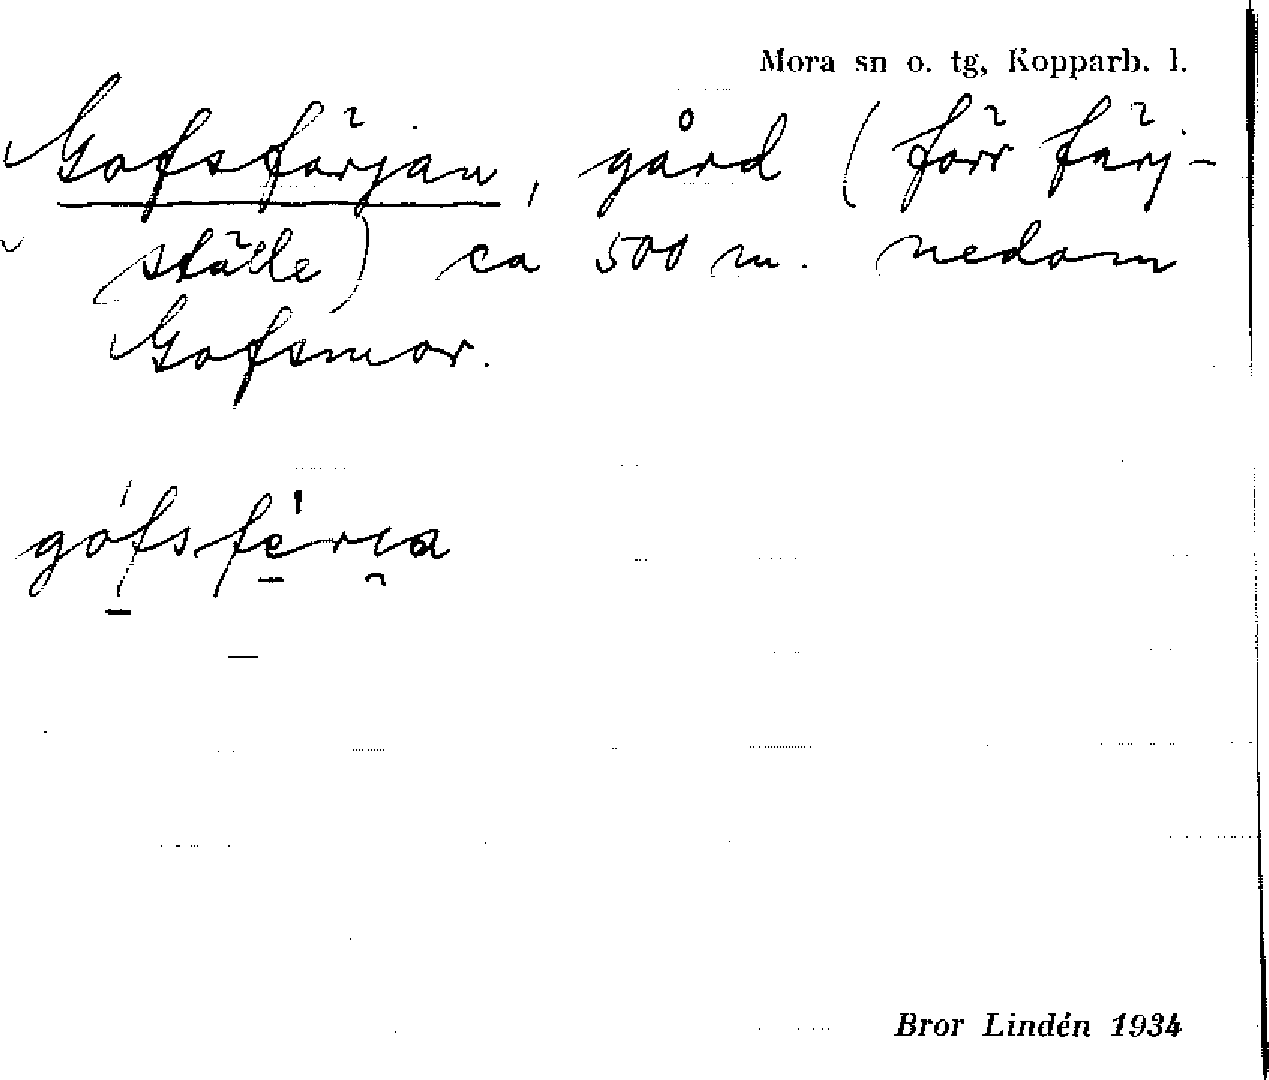 Mora sn o. tg, Kopparb. l.
Gofsfärjan, gård (förr färj-
ställe) ca 500 m. nedom
Gofsmor.
gófsfèri̯a
Bror Lindén 1934